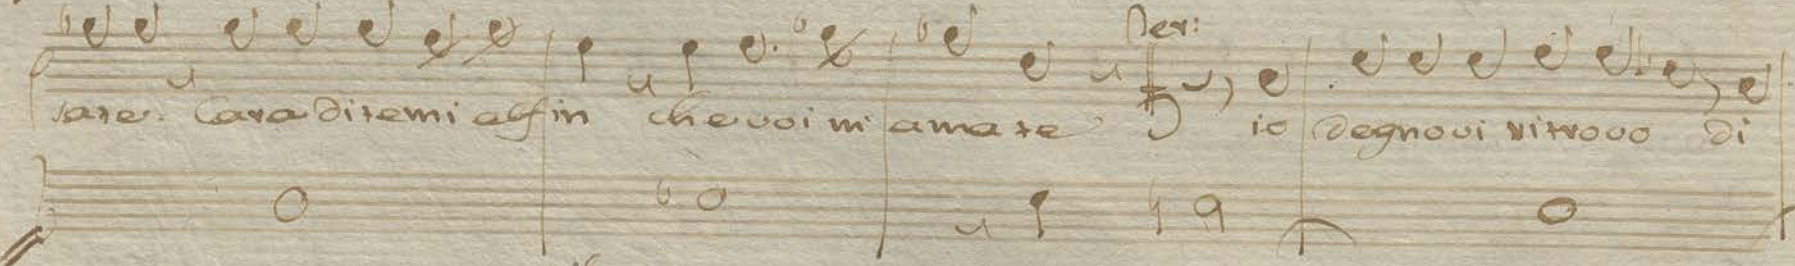 Ner:
sate. Cara ditemi alfin che voi m' amate io degno vi ritrovo di